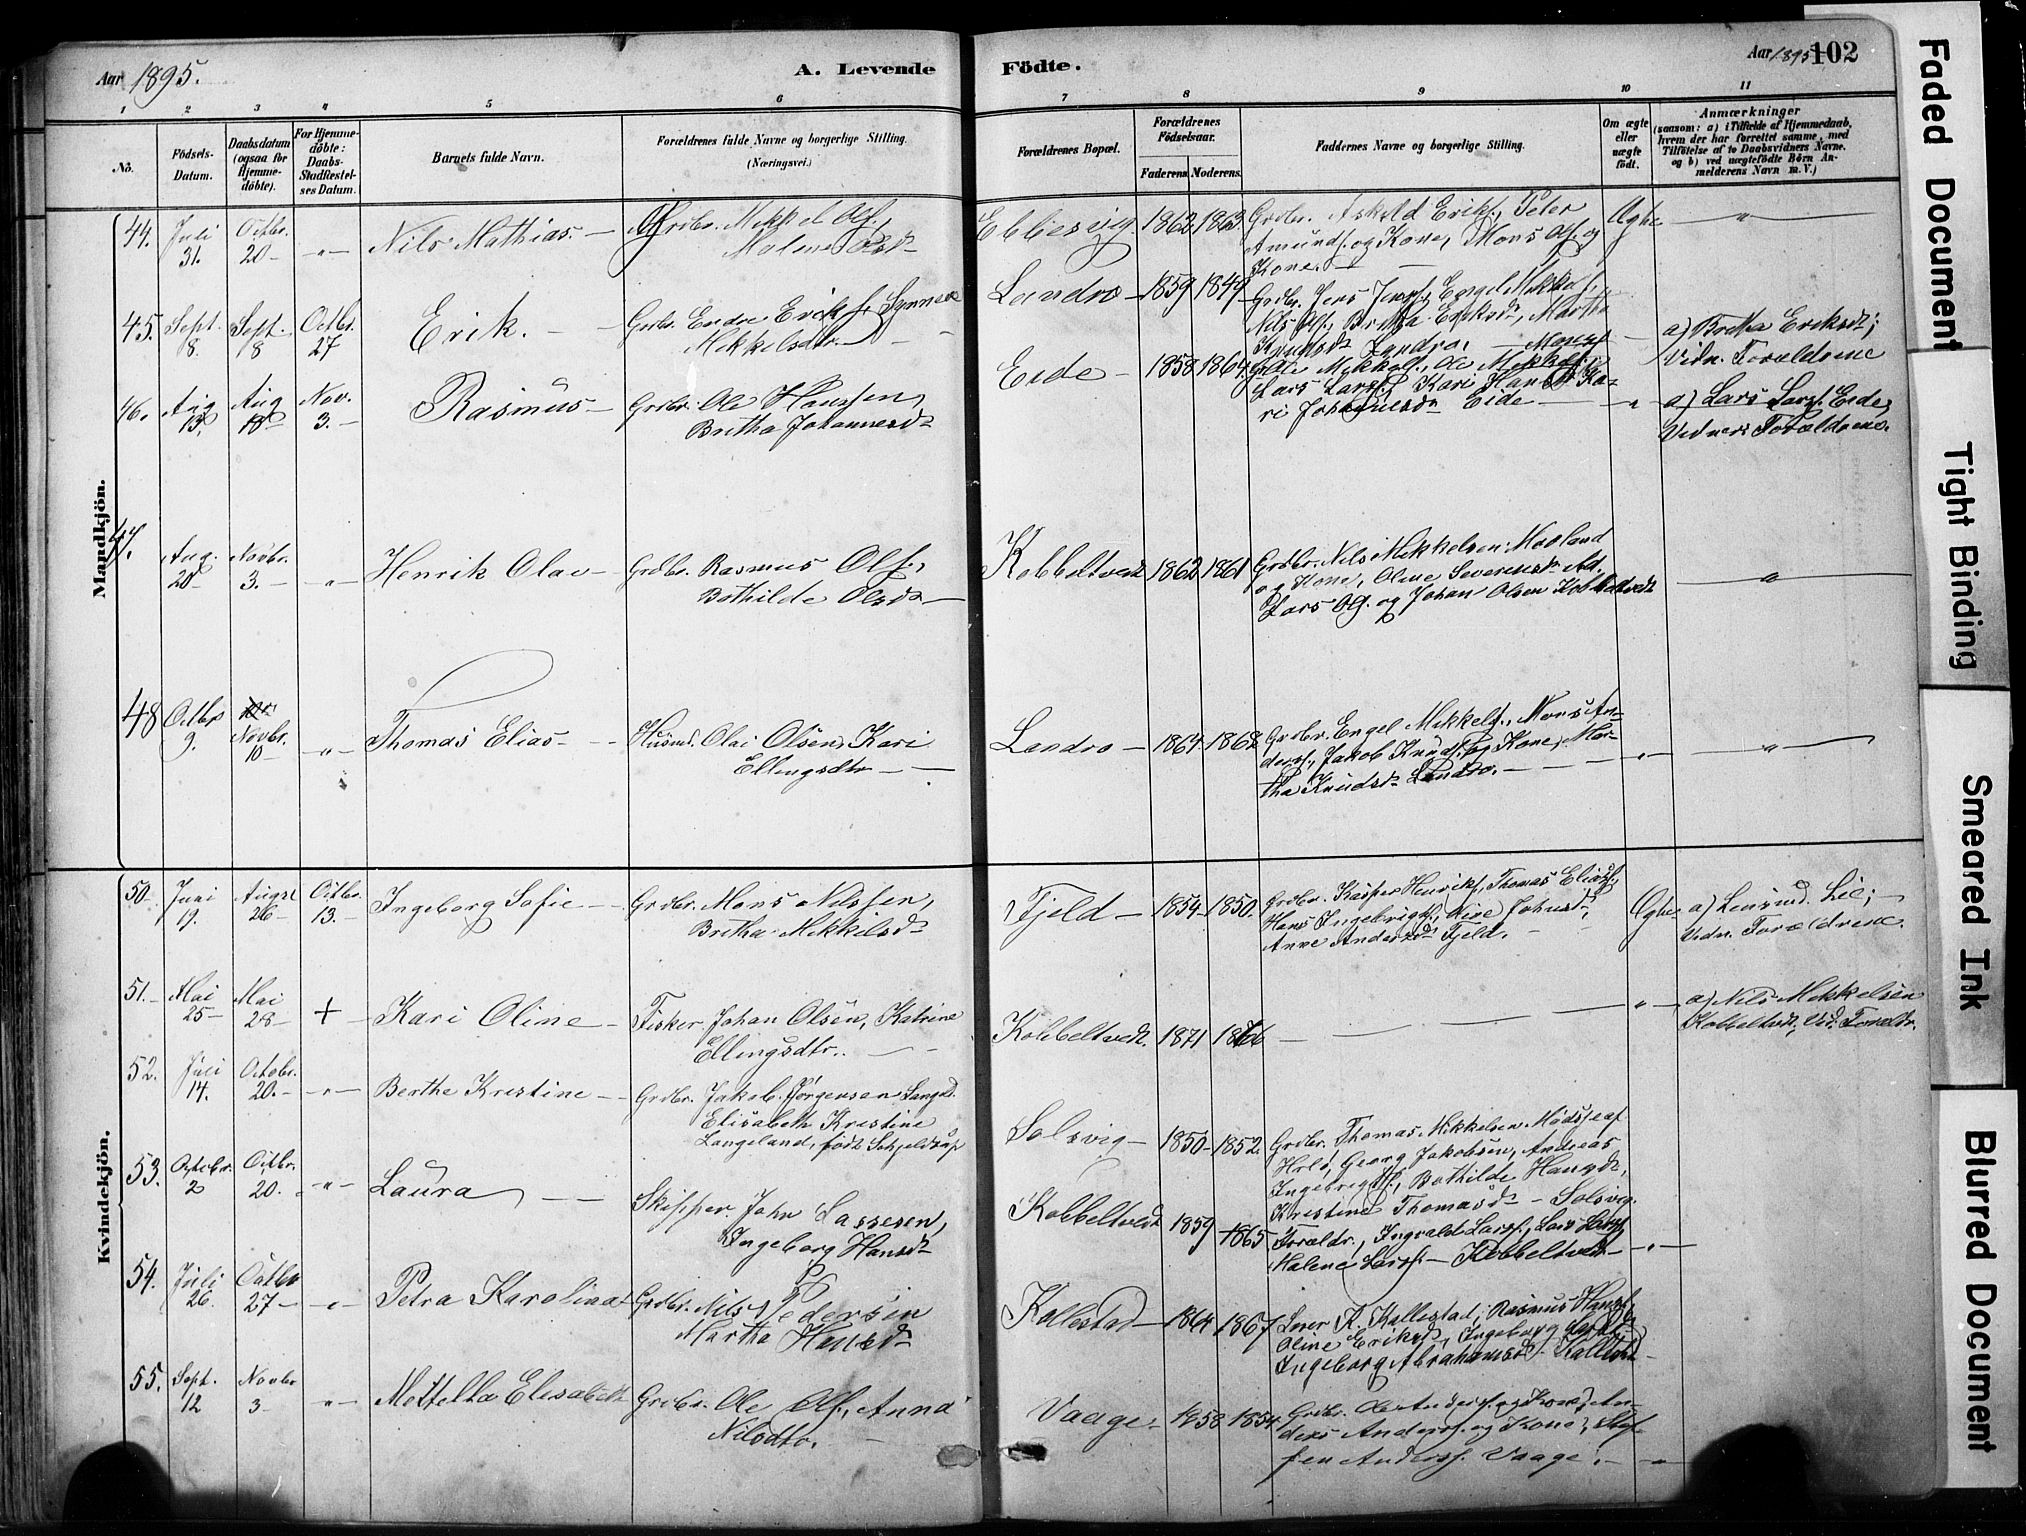 Aar 1895.
A. Levende
Födte.
Aar 1895
102
1 2 3 4 5 6 7 8 9 10 11
No.
Födsels-
Datum.
Daabsdatum
(ogsaa for
Hjemme-
döbte).
For Hjemme-
döbte:
Daabs-
Stadfæstel-
ses Datum.
Barnets fulde Navn.
Forældrenes fulde Navne og borgerlige Stilling.
(Næringsvei.)
Forældrenes Bopæl.
Forældrenes
Födselsaar.
Faderens.
Moderens.
Faddernes Navne og borgerlige Stilling.
Om ægte
eller
uægte
födt.
Anmærkninger
(saasom: a) i Tilfælde af Hjemmedaab,
hvem der har forrettet samme, med
Tilföielse af to Daabsvidners Navne.
og b) ved uægtefödte Börn An-
melderens Navn m. V.)
Mandkjön.
44. Juli 31. Octbr. 20 — „ — Nils Mathias. — Grdbr. Mikkel Olsf., Malene Olsdr
Ebbesvig 1862 1863 Grdbr. Askild Eriksf., Peter
Amundsf. og Kone, Mons Olsf. og
Kone. — Ægte „
45. Sept. 8. Sept. 18 Octbr. 27 Erik. — Grdbr. Endre Eriksf., Synneve
Mikkelsdtr. —
Landro — 1859 1849 Grdbr. Jens Jensf., Engel Mikkelsf.,
Nils Olsf., Britha Eriksdr, Martha
Knudsdr Landro. —
a) Britha Eriksdr;
Vidn. Forældrene
46. Aug 13. Aug 18 Nov. 3. — Rasmus — Grdbr. Ole Hanssen,
Britha Johannesdr
Eide — 1858 1864 Ole Mikkelsf.,
Lars Larsf., Kari Hansdr, Ka-
ri Johannesdr Eide — „
a) Lars Larsf. Eide,
Vidner: Forældrene.
47. Aug. 20 Novbr. 3. — „ Henrik Olai — Grdbr. Rasmus Olsf.,
Bothilde Olsdr —
Kobbeltvedt 1862 1861 Grdbr. Nils Mikkelsen Morland
og Kone, Oline Severinsdr
Lars Olsf. og Johan Olsen Kobbeltvedt „
48 Octbr 9. Novbr. 10 — „ — Thomas Elias — Husmd. Olai Olsen, Kari
Ellingsdtr —
Landro — 1864 1862 Grdbr. Engel Mikkelsf., Mons An-
dersf., Jakob Knudsf. og Kone, Mar-
tha Knudsdr Landro. — „ — „
Kvindekjön.
50. Juni 19. Augst 26 — Octbr. 13. — Ingeborg Sofie — Grdbr. Mons Nilssen,
Britha Mikkelsdr
Fjeld — 1854 — 1850. Grdbr. Kasper Henriksf., Thomas Eliasf.,
Hans Ingebrigtsf.,
Anne Andersdr Fjeld. — Ægte
a) Lensmd. Lie;
Vidn. Forældrene.
51. — Mai 25 — Mai 28 — + Kari Oline — Fisker Johan Olsen, Katrine
Ellingsdtr. —
Kobbeltvedt. 1871 1866 — „ —
a) Nils Mikkelsen
Kobbeltvdt, Vid. Forældr.
52. Juli 14. Octobr. 20. — „ — Berthe Kristine — Grdbr. Jakob Jörgensen Langld.
Elisabeth Kristine
Langeland, födt Schjeldrup
Solsvig — 1850 — 1852. Grdbr. Thomas Mikkelsen
Georg Jakobsen, Andreas
Ingebrigtsf., Bothilde Hansdr,
Kristine Thomasdr — Solsvig.
53. Octobr. 2 Octbr. 20. — „ — Laura — Skipper John Lassesen,
Ingeborg Hansdr
Kobbeltvedt 1859 1865 Forældr., Ingvald Larsf., Lars Larsf.
Malene Larsf. — Kobbeltvedt — „ —
54. Juli 26. Octbr 27 — „ — Petra Karolina Grdbr. Nils Pedersen
Martha Hansdr
Kallestad — 1864 1867 Lærer K. Kallestad, Rasmus Hansf.,
Oline Eriksdr, Ingeborg
Ingeborg Abrahamsdr Kallestd —
55. Sept. 12 Novbr 3 — „ — Mettella Elisabeth Grdbr. Ole Olsf., Anna
Nilsdtr. —
Vaage. 1858 1854 Grdbr. Ole Andersf. og Kone, An-
ders Andersf. og Kone, Stef-
fen Andersf. Vaage. — „ —
Faded Document
Tight Binding
Smeared Ink
Blurred Document